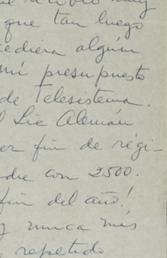 que tan luego
cediera algún
mi presupuesto
de Telesistema.
l Lic Alemán
er fin de régi-
die con 2500.
fin del año!
y nunca más
repetido